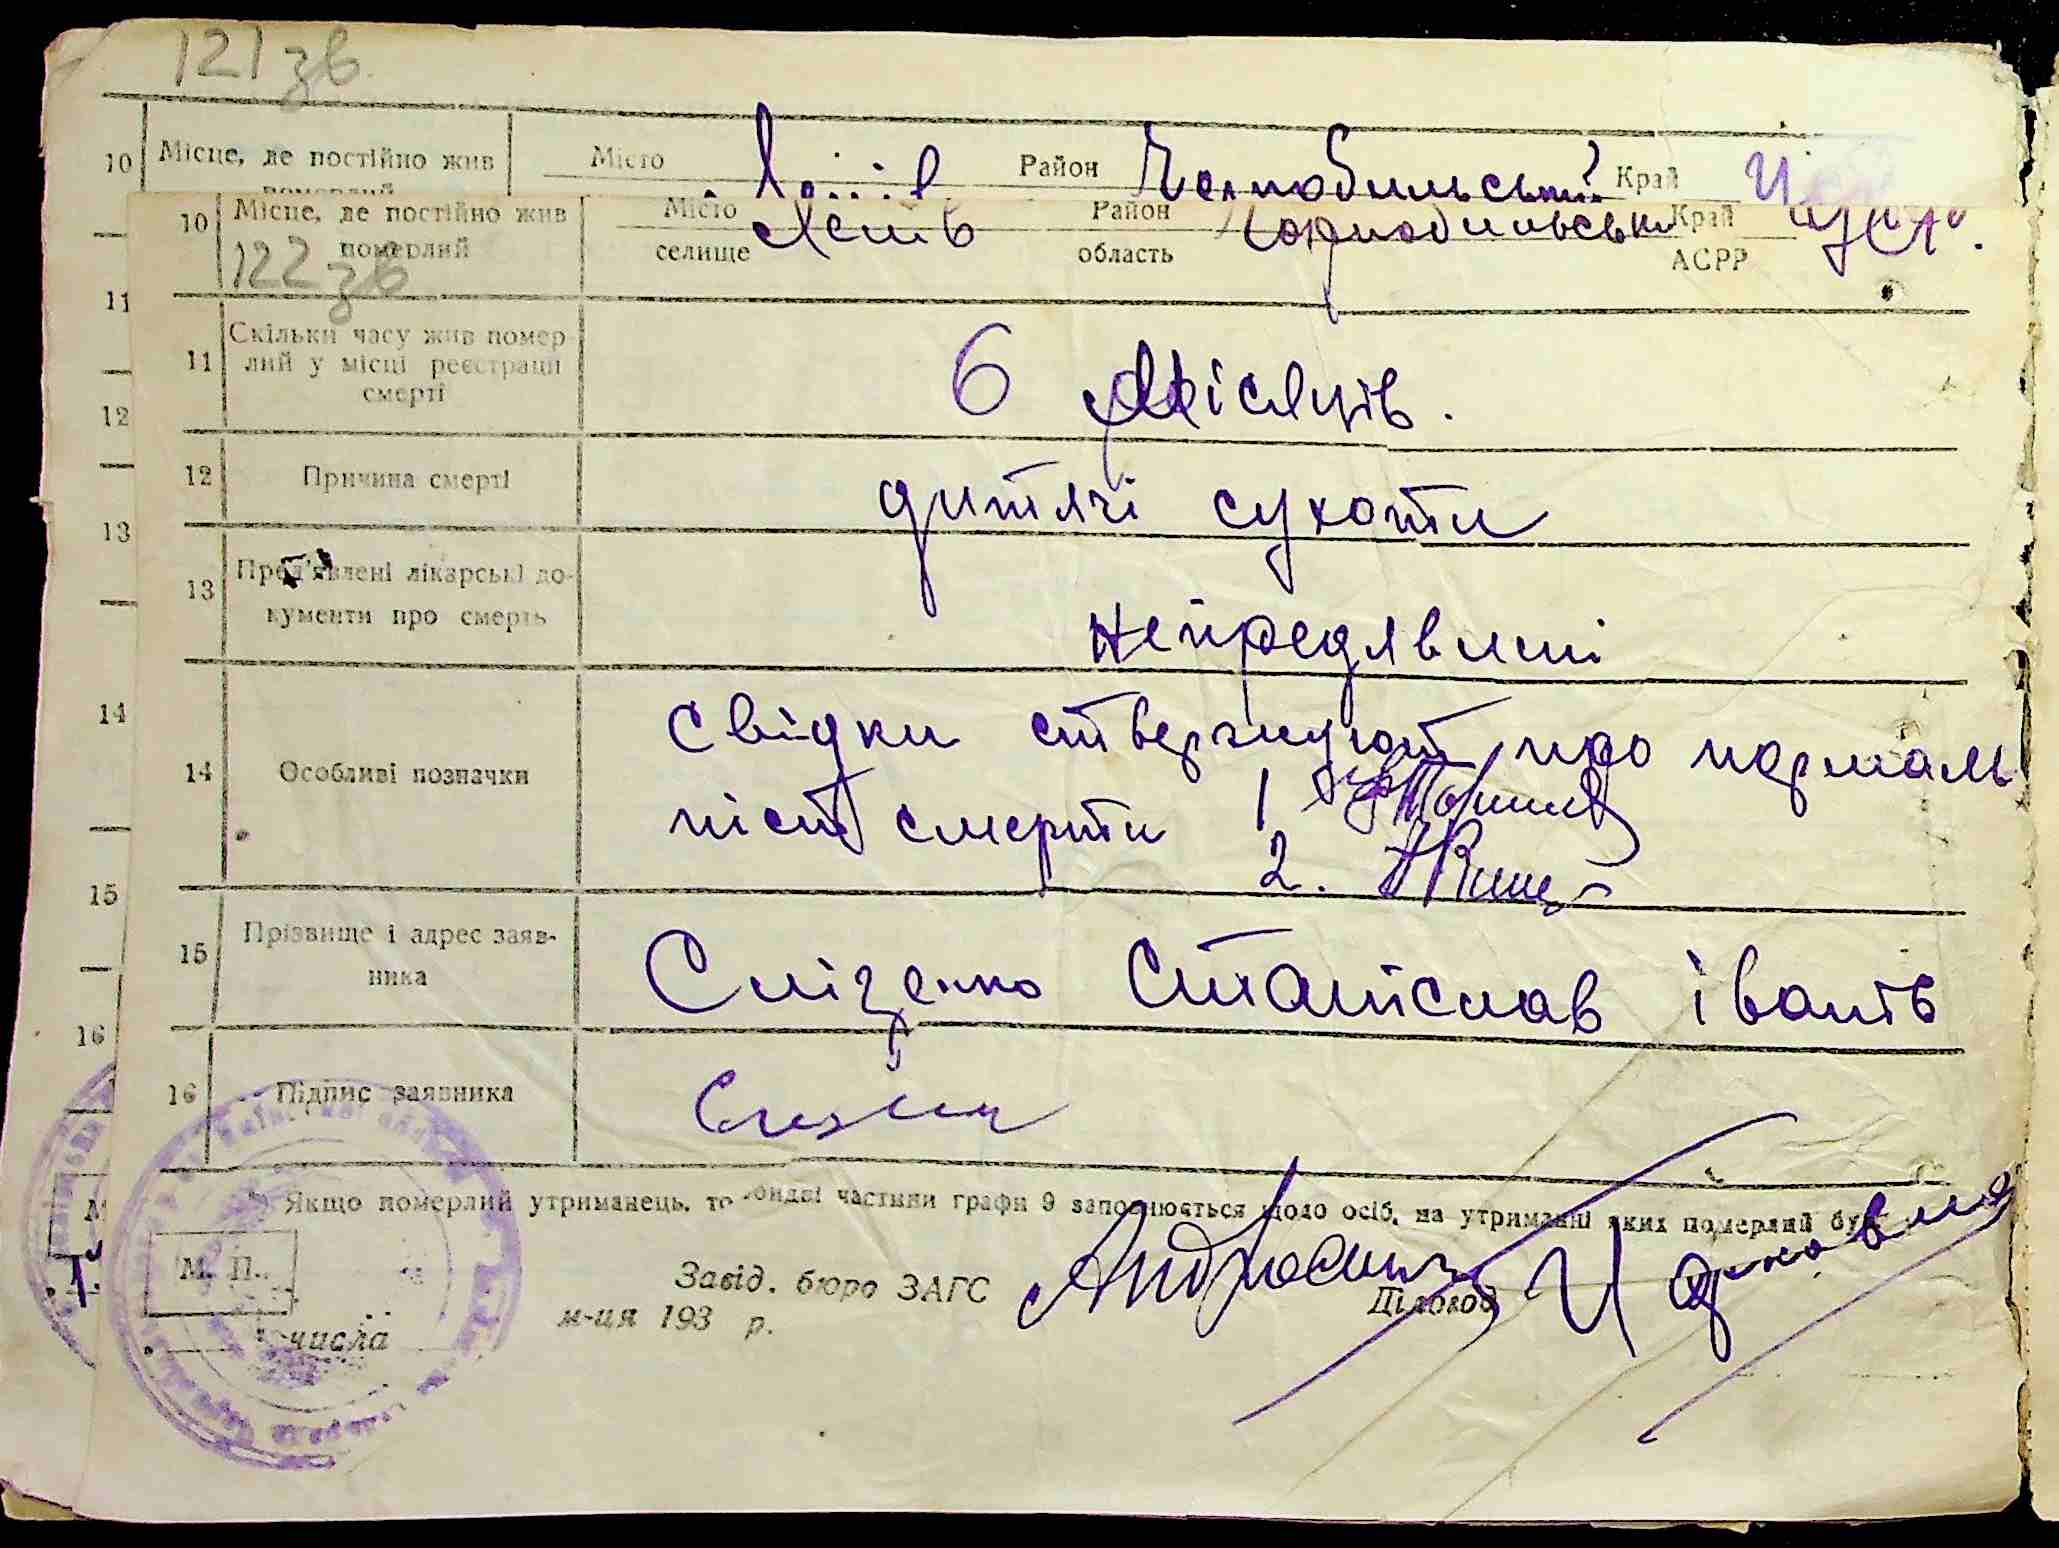 121зв
10 Місце, де постійно жив
Місто Район Чернобильський Край
10 Місце, де постійно жив померлий
Місто селище Район область Чорнобильськи Край АСРР УСРР
122зв
11 Скільки часу жив помер
лий у місці реєстрації
смерті
6 місяців.
12 Причина смерті
дитячі сухоти
13 Пред'явлені лікарські до-
кументи про смерть
непредявлені
14 Особливі позначки
Свідки ствержують про нормаль
ність смерти 1
2.
15 Прізвище і адрес заяв-
ника
Слізенко Станіслав Іванів
16 Підпис заявника
Якщо померлий утриманець, то частини графи 9 заповнюється щодо осіб, на утриманні яких померлий був
М. П.
Завід. бюро ЗАГС
Діловод
числа м-ця 193 р.
11
12
13
14
15
16